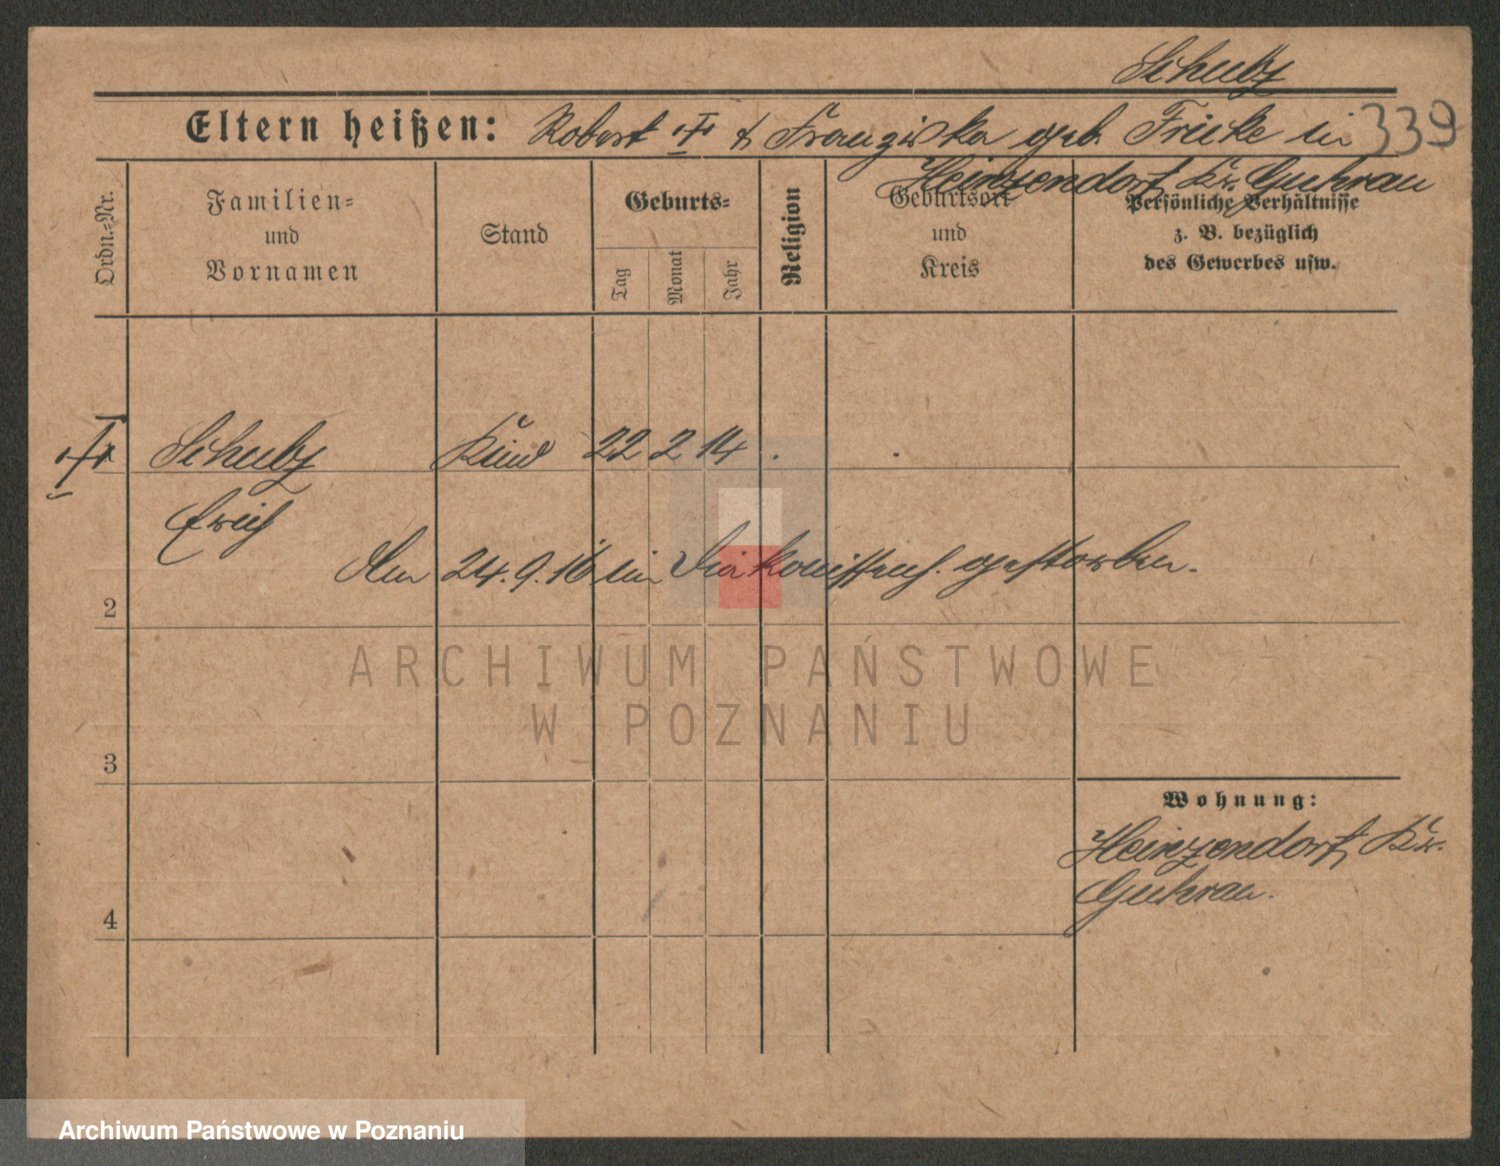 Schubz
Eltern heißen: Robert † & Franziska geb. Fricke in 339
Heinzendorf, Kr. Guhrau
Ordn.-Nr.
Familien-
und
Vornamen
Stand
Geburts-
Tag
Monat
Jahr
Religion
Geburtsort
und
Kreis
Persönliche Verhältnisse
z. B. bezüglich
des Gewerbes usw.
† Schubz Kind 22 2 14 . .
Erich
Am 24.9.16 im Diakonissenh. gestorben.
2
ARCHIWUM PAŃSTWOWE
W POZNANIU
3
Wohnung:
Heinzendorf, Kr.
Guhrau.
4
Archiwum Państwowe w Poznaniu